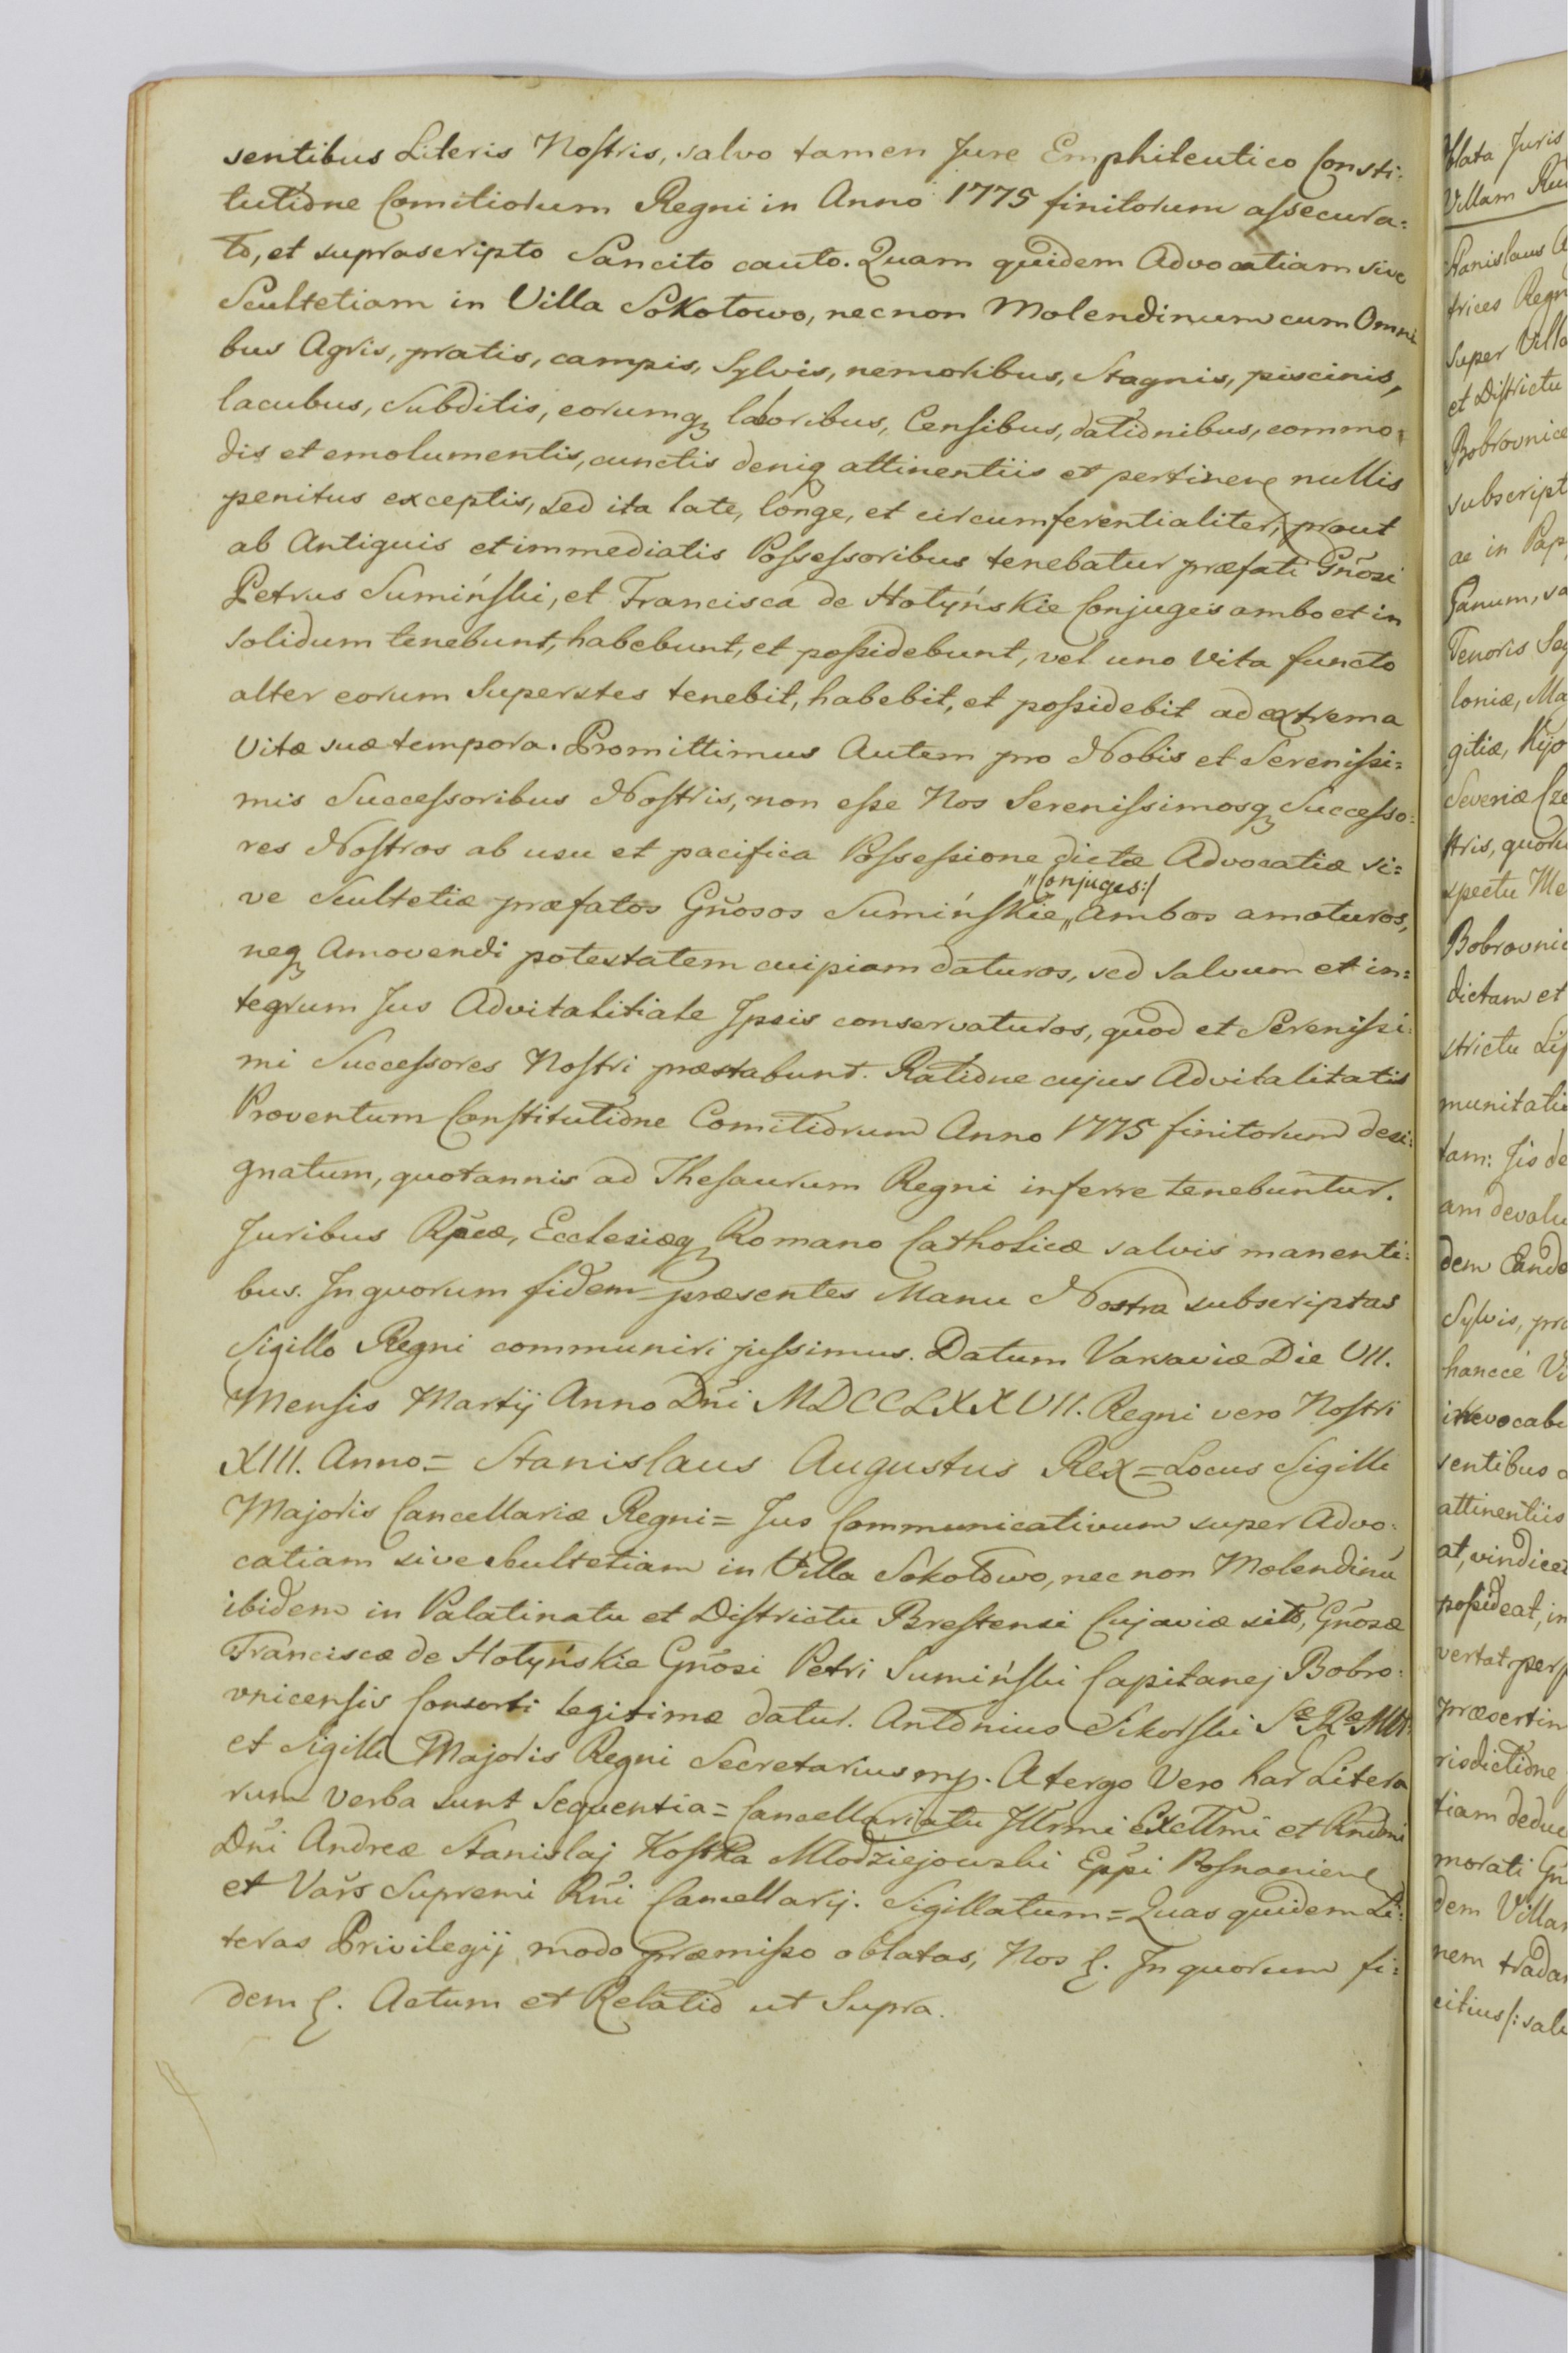 sentibus Literis Nostris, salvo tamen Jure Emphiteutico Consti:
tutione Comitiorum Regni in Anno 1775 finitorum assecura:
to, et suprascripto Sancito cauto. Quam quidem Advocatiam sive
Scultetiam in Villa Sokołowo, necnon Molendinum cum Omni
bus Agris, pratis, campis, Sylvis, nemoribus, Stagnis, piscinis,
lacubus, Subditis, eorumq laboribus, Censibus, dationibus, commo:
dis et emolumentis, cunctis deniq attinentiis et pertinene nullis
penitus exceptis, sed ita late, longe, et circumferentialiter, prout
ab Antiquis et immediatis Possessoribus tenebatur præfati Gnosi
Petrus Sumiński, et Francisca de Hołyńskie Conjuges ambo et in
solidum tenebunt, habebunt, et possidebunt, vel uno vita functo
alter eorum Superstes tenebit, habebit, et possidebit ad extrema
Vitæ suæ tempora. Promittimus Autem pro Nobis et Serenissi:
mis Successoribus Nostris, non esse Nos Serenissimosq Successo:
res Nostros ab usu et pacifica Possessione dictæ Advocatiæ si:
"Conjuges:/
ve Scultetiæ præfatos Gnosos Sumińskie " ambos amoturos,
neq Amovendi potestatem cuipiam daturos, sed salvum et in:
tegrum Jus Advitalitiale Ipsis conservaturos, quod et Serenissi:
mi Successores Nostri præstabunt. Ratione cujus Advitalitatis
Proventum Constitutione Comitiorum Anno 1775 finitorum desi:
gnatum, quotannis ad Thesaurum Regni inferre tenebuntur.
Juribus Rpcæ, Ecclesiæq Romano Catholicæ salvis manenti:
bus. In quorum fidem præsentes Manu Nostra subscriptas
Sigillo Regni communiri jussimus. Datum Varsaviæ Die VII.
Mensis Martij Anno Dni MDCCLXXVII. Regni vero Nostri
XIII. Anno = Stanislaus Augustus Rex = Locus Sigilli
Majoris Cancellariæ Regni = Jus Communicativum super Advo:
catiam sive Scultetiam in Villa Sokołowo, nec non Molendinū
ibidem in Palatinatu et Districtu Brestensi Cujaviæ sito, Gnosæ
Franciscæ de Hołyńskie Gnosi Petri Sumiński Capitanej Bobro:
vnicensis Consorti legitimæ datur. Antonius Sikorski Sæ Ræ Mtis
et Sigilli Majoris Regni Secretarius mp. A tergo Vero har Litera
rum verba sunt Sequentia = Cancellariatu Illrmi Excllmi et Rndmi
Dni Andreæ Stanislaj Kostka Młodziejowski Eppi Posnaniene
et Vars Supremi Rni Cancellarij. Sigillatum = Quas quidem Li:
teras Privilegij modo præmisso oblatas, Nos &. In quorum fi:
dem &. Actum et Relatio ut Supra.
blata Juris
Villam
Stanislaus A
trices Regn
Super Villa
et Districtu
Bobrovnice
subscript
ac in Pap
Panum, sa
Tenoris Seq
loniæ, Ma
gitiæ, Kijo
Severiæ Cze
stris, quor
spectu Me
Bobrovnic
dictam et
strictu Lip
munitatis
tam: Jis de
am devolu
dem Eand
Sylvis, pra
hancce Vi
irrevocabi
sentibus
attinentiis
at, vindicet
possideat, in
vertat perp
præsertim
risdictione
tiam deduc
morati Gn
dem Villam
nem tradan
citius /: salv